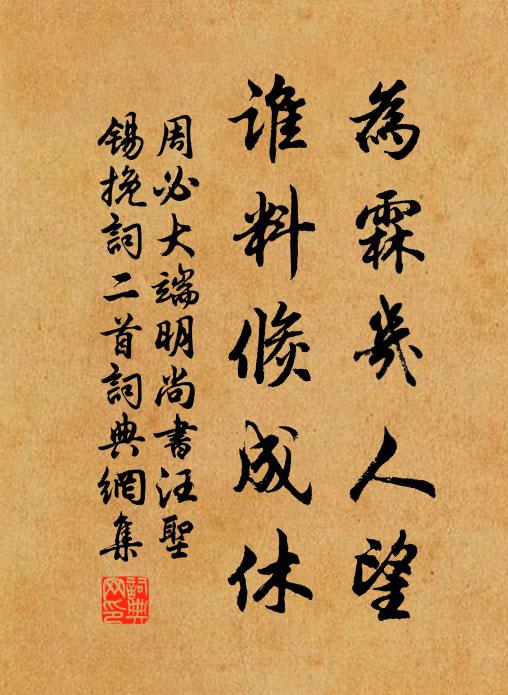 為霖幾人望
誰料倐成休
周必大端明尚書汪聖
錫挽詞二首詞典網集
詞典網印